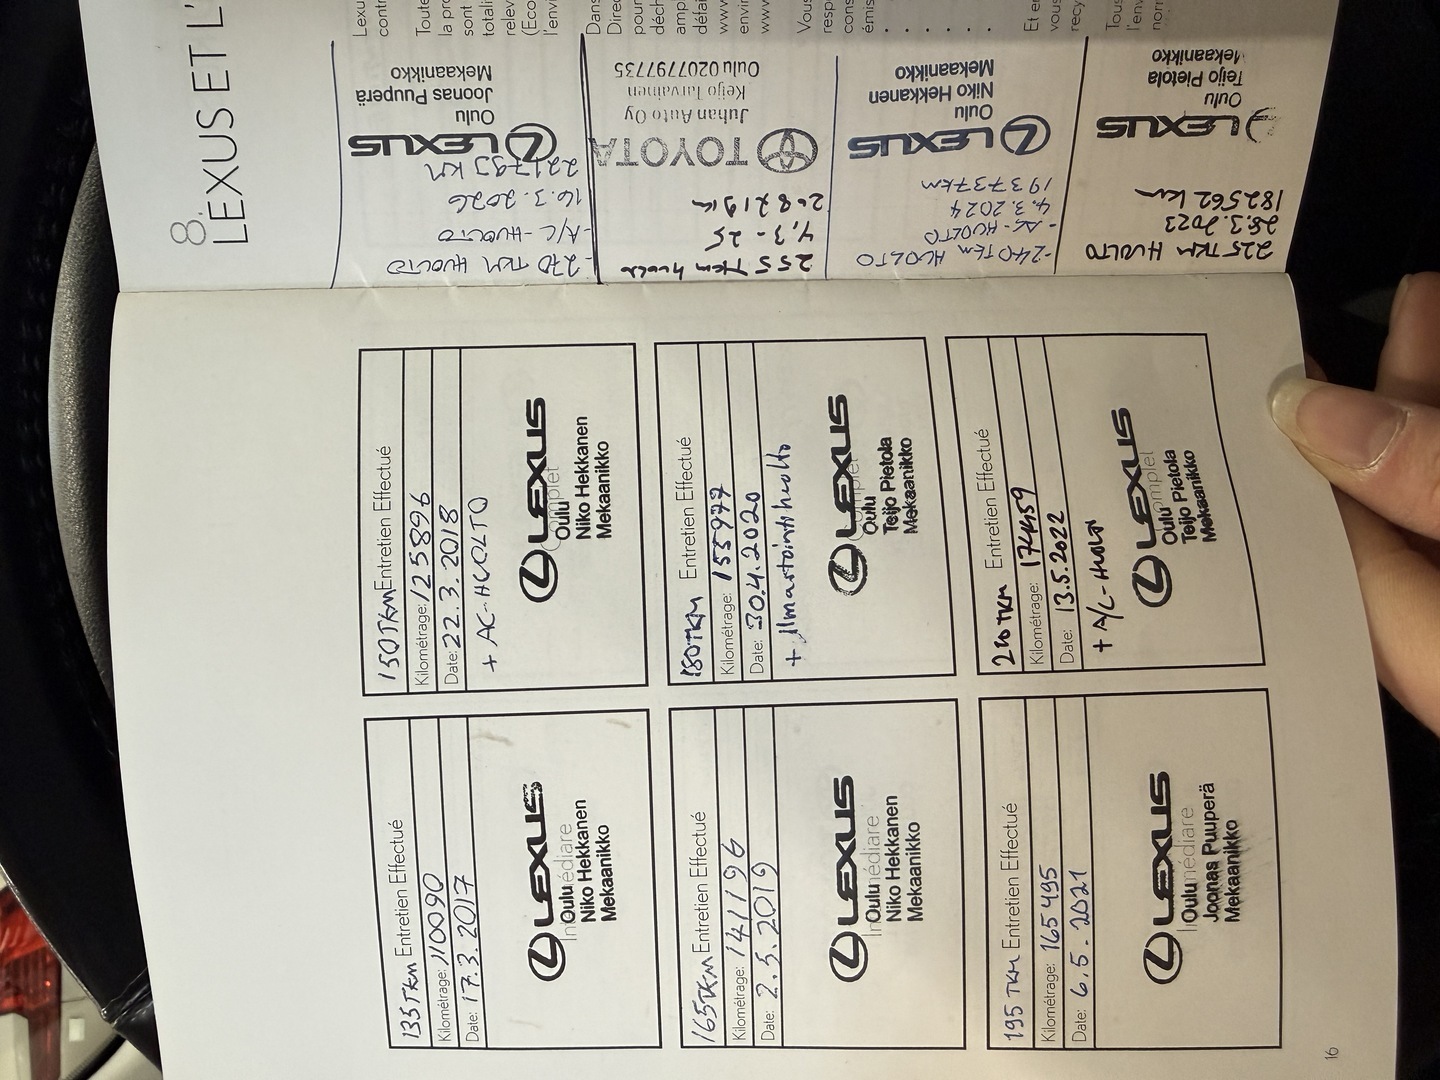 135TKM Entretien Effectué
Kilométrage: 110090
Date: 17.3.2017
LEXUS
Oulu
Niko Hekkanen
Mekaanikko
150TKM Entretien Effectué
Kilométrage: 125896
Date: 22.3.2018
+ AC-HUOLTO
LEXUS
Complet
Oulu
Niko Hekkanen
Mekaanikko
165TKM Entretien Effectué
Kilométrage: 141196
Date: 2.5.2019
LEXUS
Oulu
Niko Hekkanen
Mekaanikko
180TKM Entretien Effectué
Kilométrage: 155977
Date: 30.4.2020
+ Ilmastointihuolto
LEXUS
Complet
Oulu
Teijo Pietola
Mekaanikko
195 TKM Entretien Effectué
Kilométrage: 165495
Date: 6.5.2021
LEXUS
Oulu
Joonas Puuperä
Mekaanikko
210 TKM Entretien Effectué
Kilométrage: 174459
Date: 13.5.2022
+ A/C-Huolto
LEXUS
Complet
Oulu
Teijo Pietola
Mekaanikko
16
225 TKM HUOLTO
28.3.2023
182562 km
LEXUS
Oulu
Teijo Pietola
Mekaanikko
-240 TKM HUOLTO
- AC-HUOLTO
4.3.2024
193737km
LEXUS
Oulu
Niko Hekkanen
Mekaanikko
255 Tkm huolto
4,3-25
208219 km
TOYOTA
Juhan Auto Oy
Keijo Tarvainen
Oulu 0207797735
- 270 TKM HUOLTO
- A/C-HUOLTO
16.3.2026
221793 KM
LEXUS
Oulu
Joonas Puuperä
Mekaanikko
8.
LEXUS ET L'